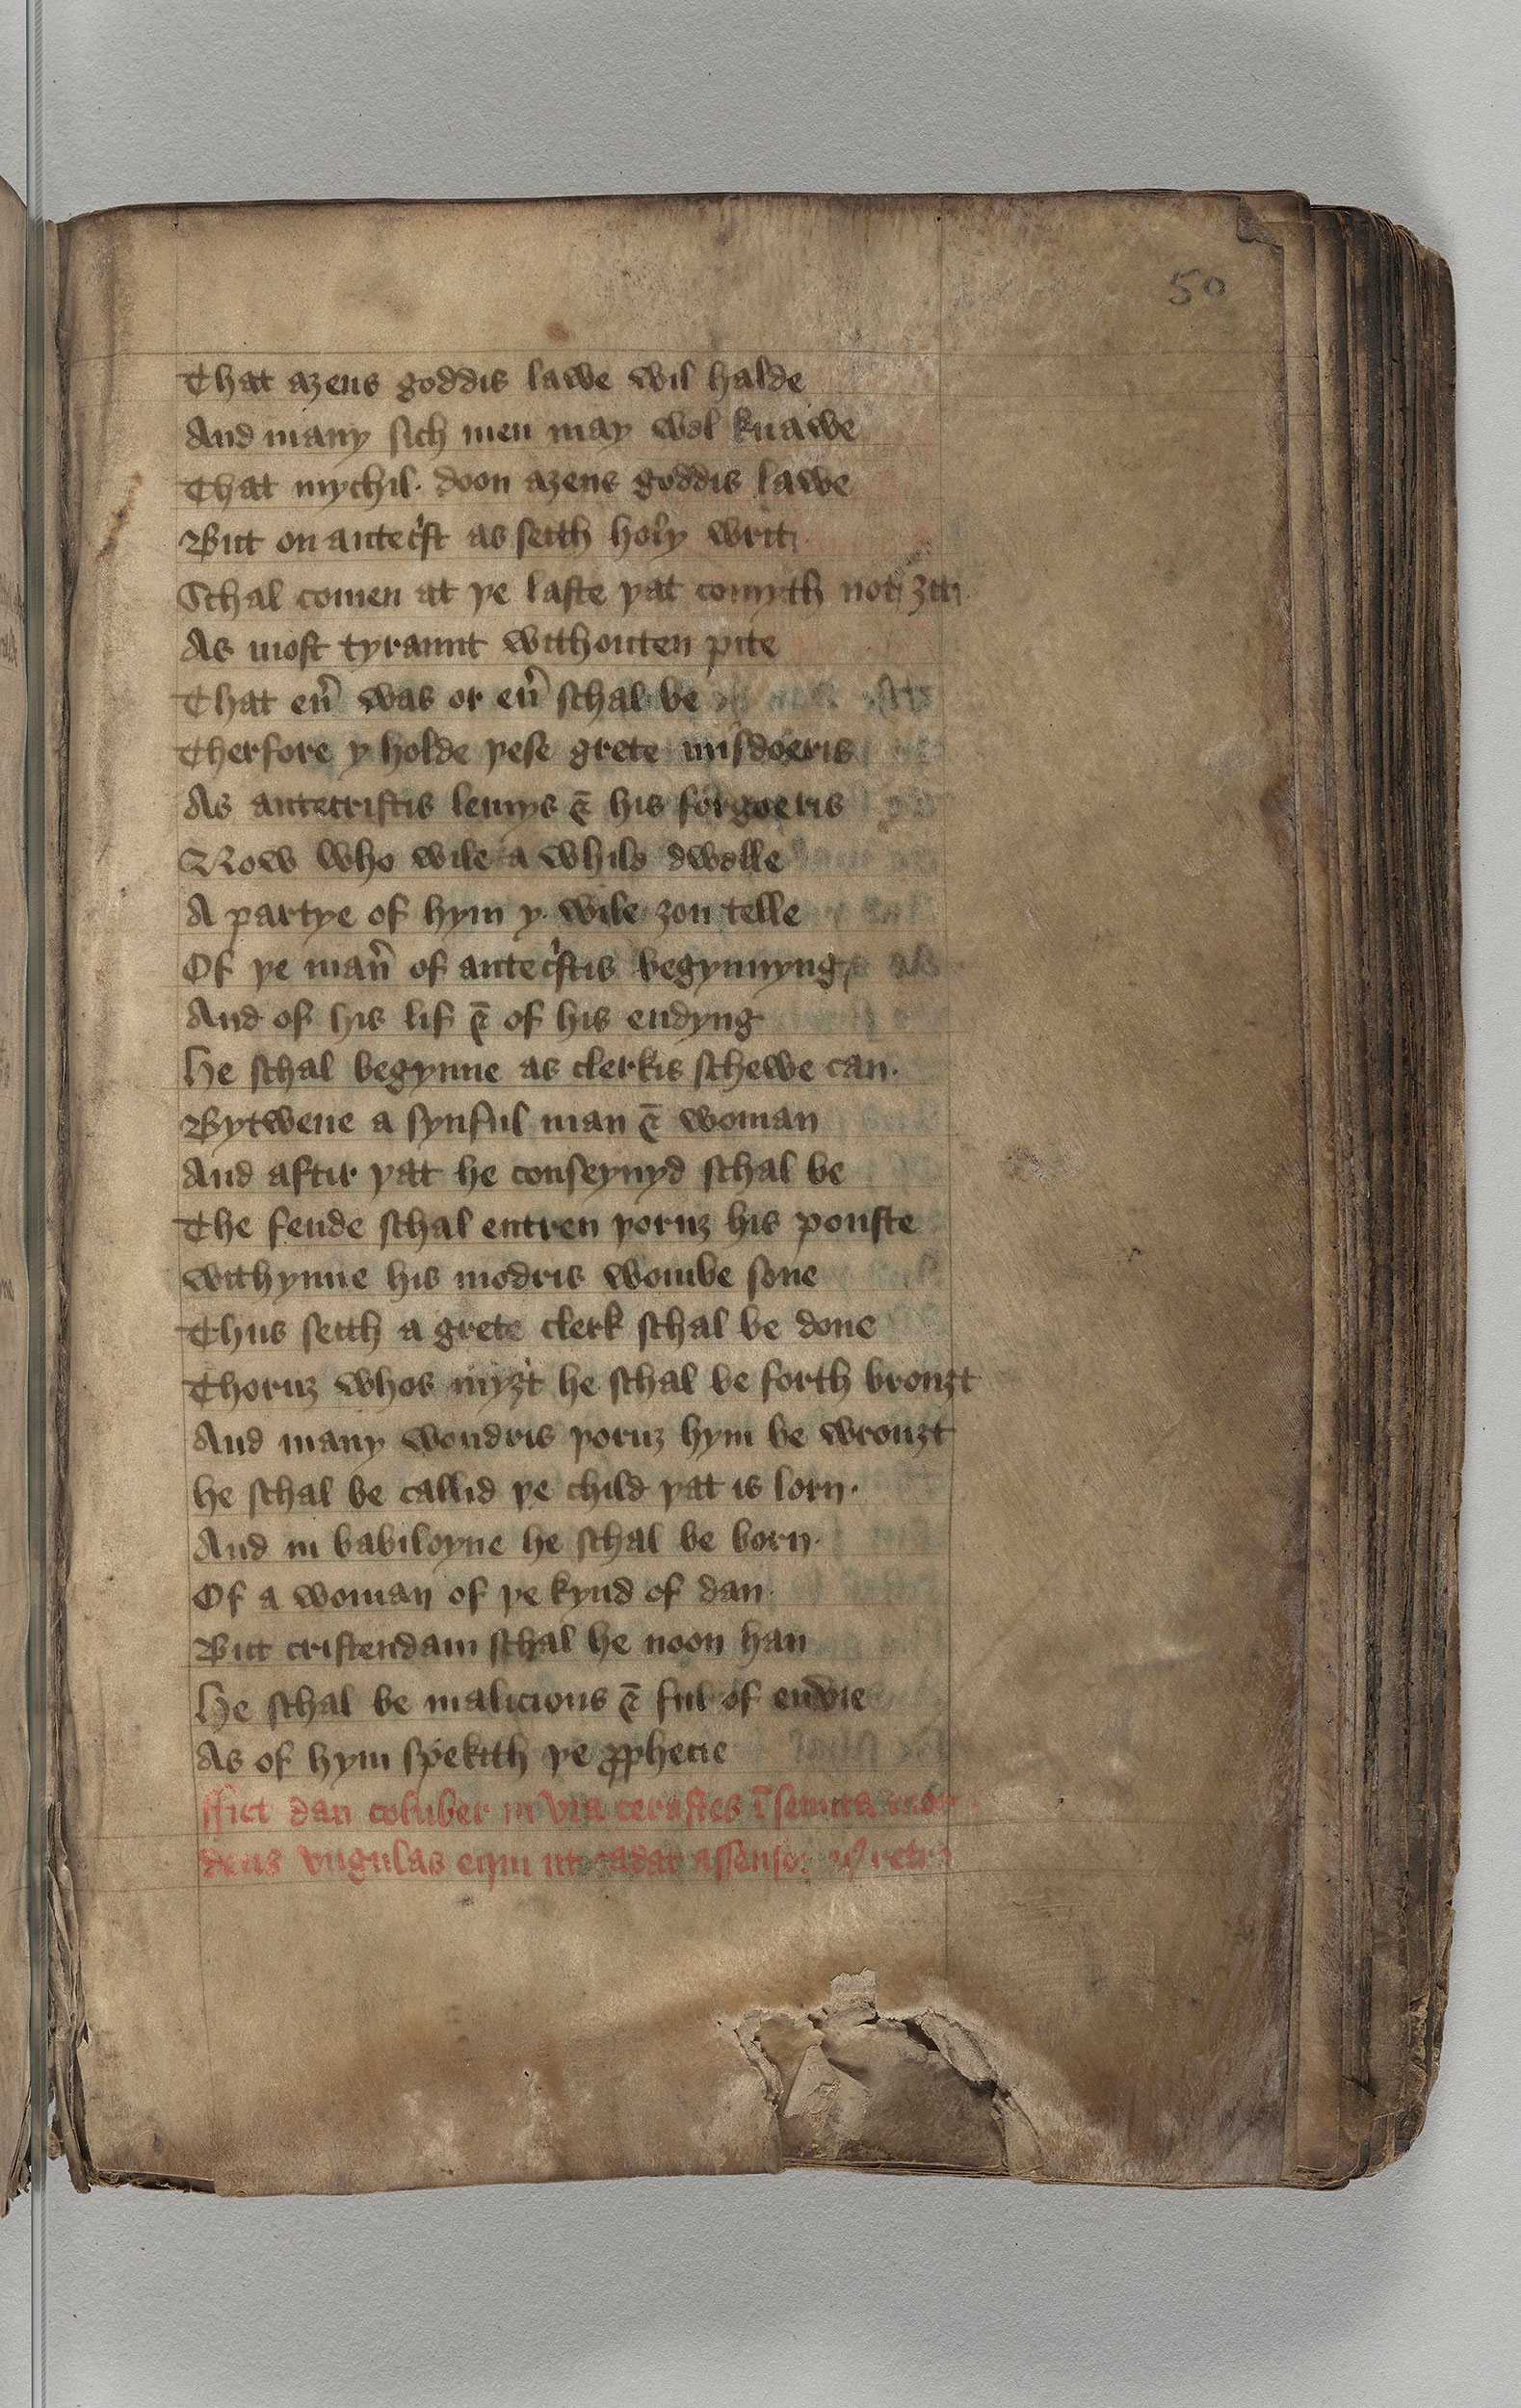 50
That aȝens goddis lawe wil halde
And many sich men may wel knawe
That mychil· doon aȝens goddis lawe
But on antecͥst as seith holy writ
Schal comen at þe laste þat comyth not ȝit
As most tyraunt withouten pite
That eu͛ was or eu͛ schal be
Therfore y holde þese grete misdoeris
As antecristis lemys & his forgoeris
Now who wile a while dwelle
A partye of hym y· wile ȝou telle
Of þe man͛ of antecͥstis begynnyng
And of his lif & of his endyng
He schal begynne as clerkis schewe can·
Bytwene a synful man & woman
And aftir þat he conseyuyd schal be
The fende schal entren þoruȝ his pouste
withynne his modris wombe sone
Thus seith a grete clerk schal be done
Thoruȝ whos myȝt he schal be forth brouȝt
And many wondris þoruȝ hym be wrouȝt
he schal be callid þe child þat is lorn·
And in babiloyne he schal be born·
Of a woman of þe kynd of dan·
But cristendam schal he noon han
He schal be malicious & ful of enuie
As of hym spekith þe ꝓphecie
ffiet dan coluber in via cerastes ī semita mor
dens vngulas equi ut cadat assensor retro